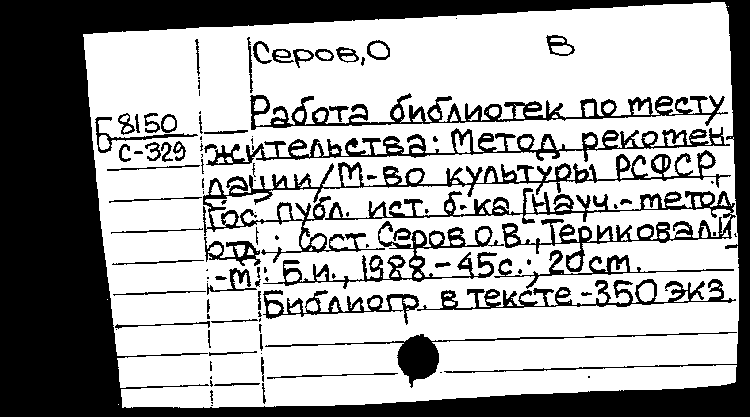 Серов,О В
Б 8150
С-329
Работа библиотек по месту
жительства: Метод. рекомен-
дации/М-во культуры РСФСР,
Гос. публ. ист. б-ка [Науч.-метод.
отд.; Сост. Серов О.В., Терикова Л.И
.-М.: Б.и., 1988.-45с.; 20см.
Библиогр. в тексте.-350 экз.